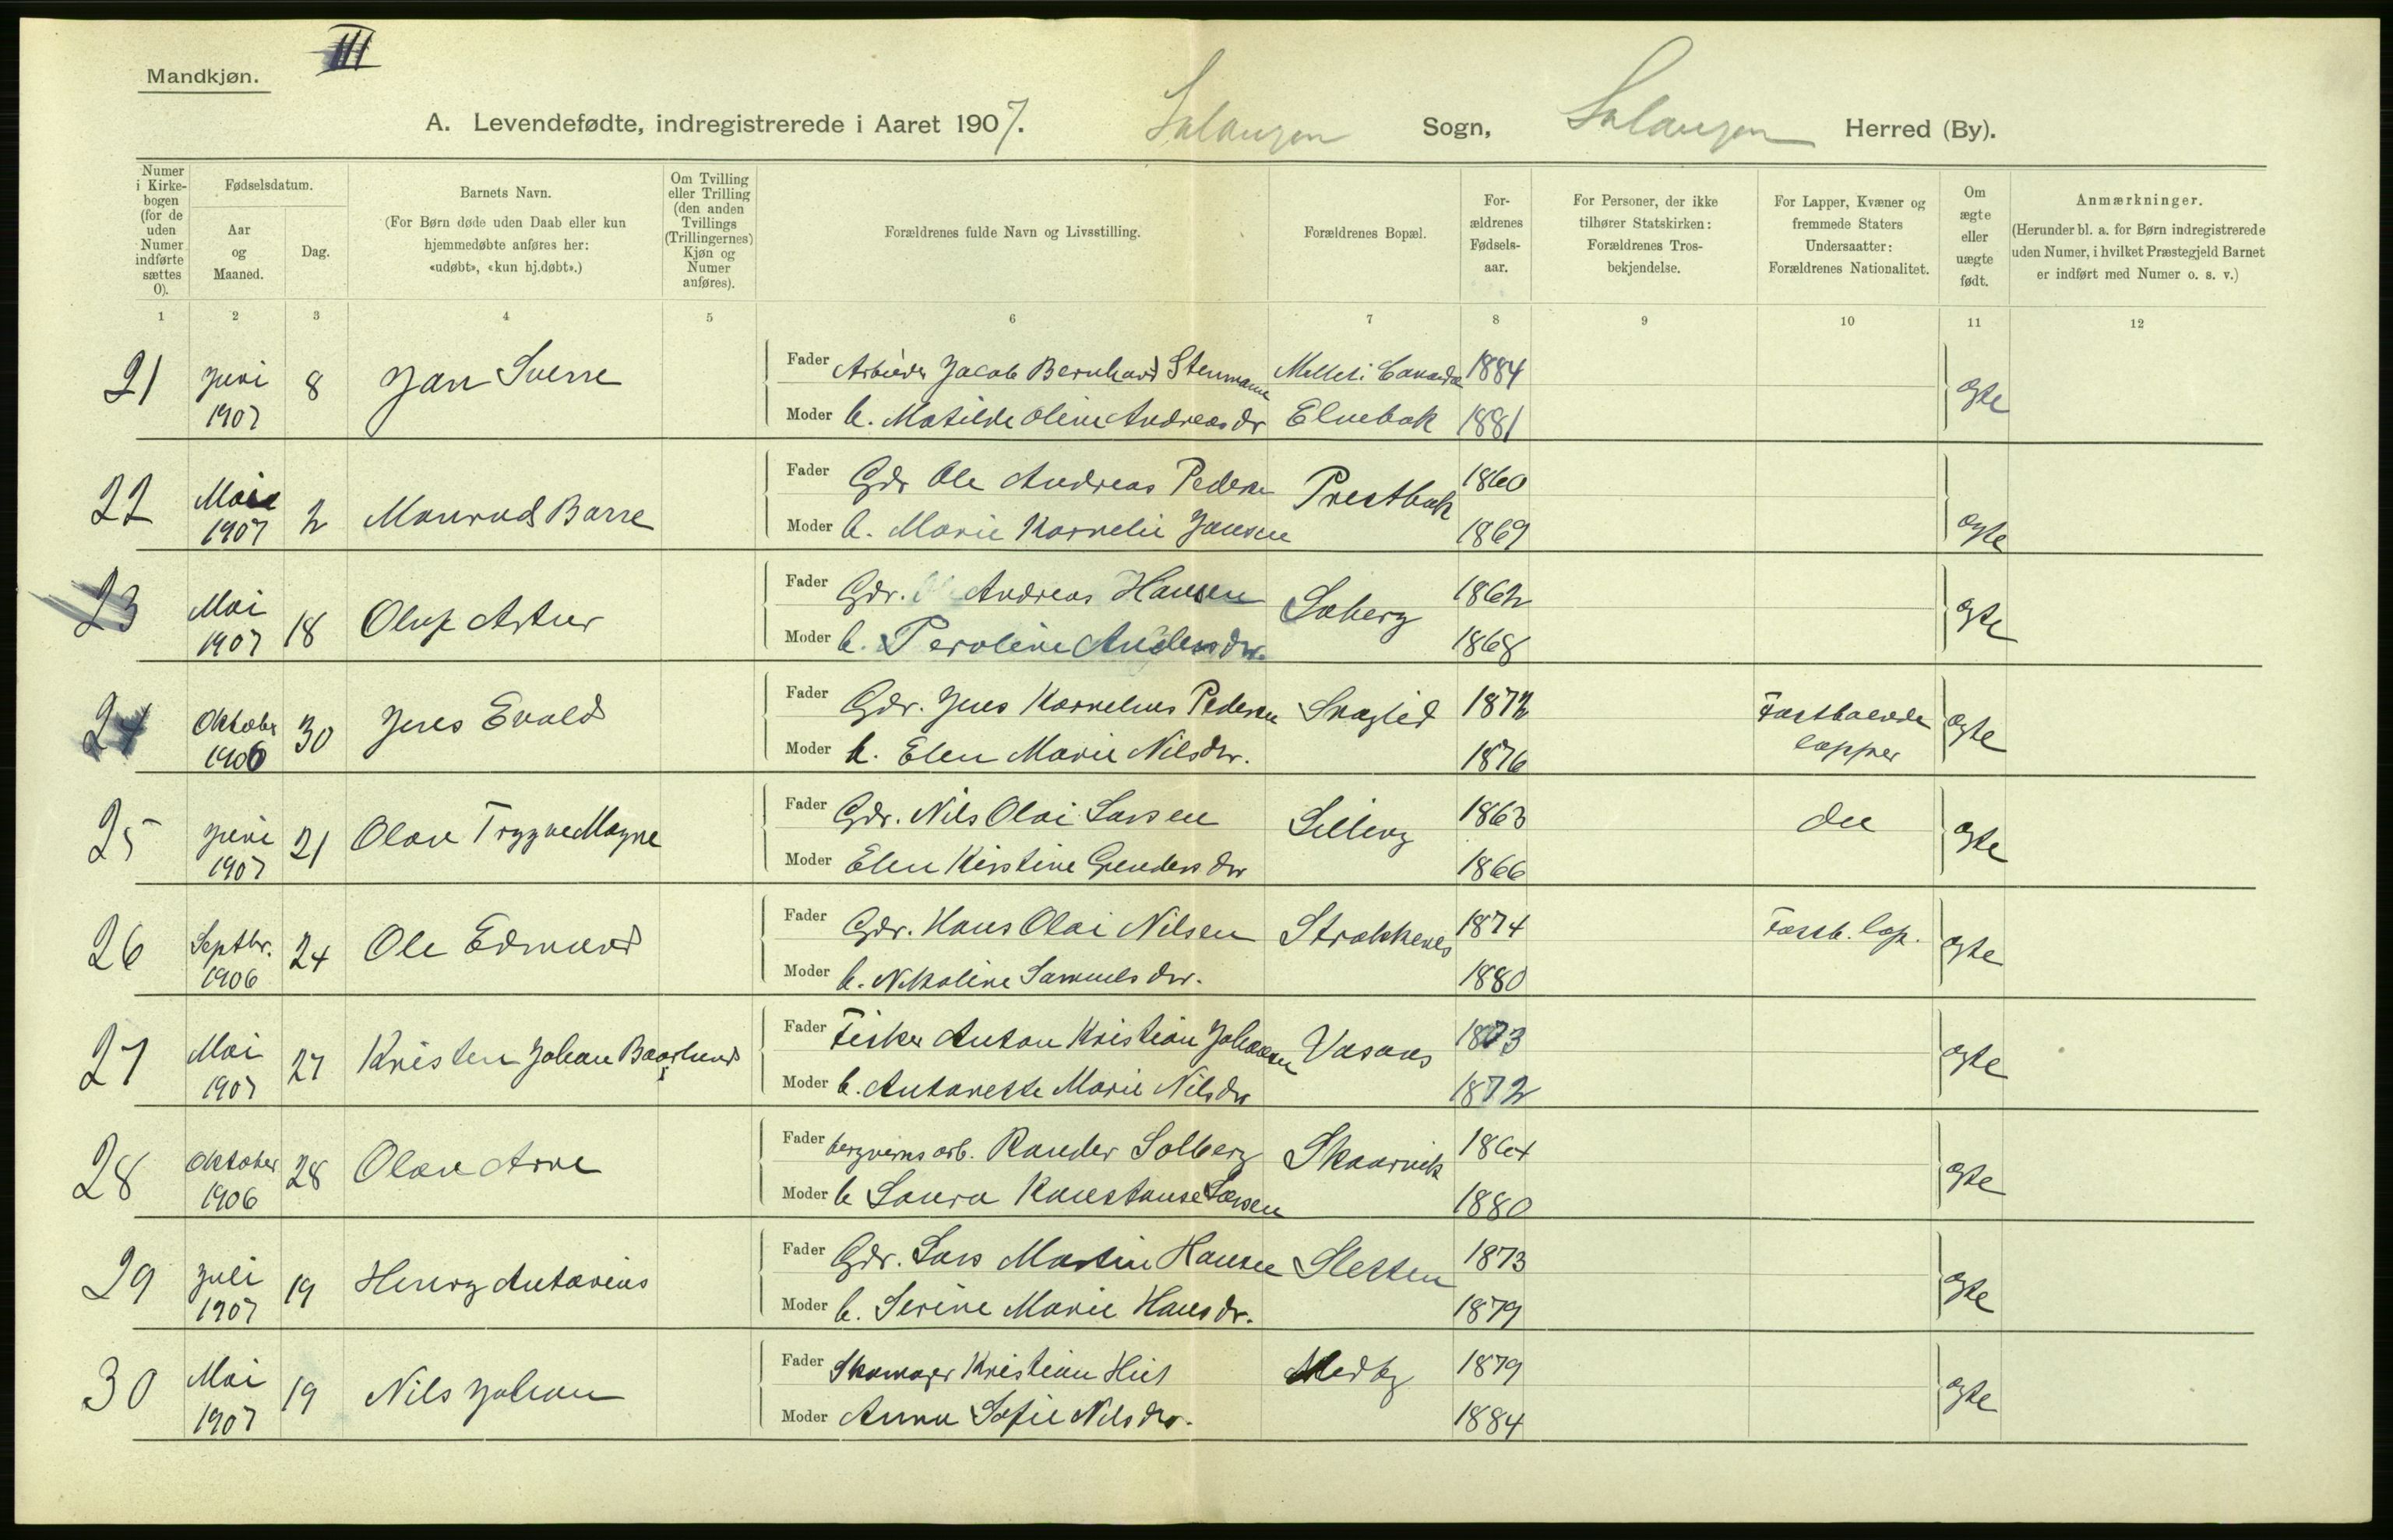 III
Mandkjøn.
A. Levendefødte, indregistrerede i Aaret 1907. Salangen Sogn, Salangen Herred (By).
Numer i Kirkebogen (for de uden Numer indførte sættes 0).
Fødselsdatum.
Aar og Maaned.
Dag.
Barnets Navn.
(For Børn døde uden Daab eller kun hjemmedøbte anføres her: «udøbt», «kun hj.døbt».)
Om Tvilling eller Trilling (den anden Tvillings (Trillingernes) Kjøn og Numer anføres).
Forældrenes fulde Navn og Livsstilling.
Forældrenes Bopæl.
Forældrenes Fødselsaar.
For Personer, der ikke tilhører Statskirken: Forældrenes Trosbekjendelse.
For Lapper, Kvæner og fremmede Staters Undersaatter: Forældrenes Nationalitet.
Om ægte eller uægte født.
Anmærkninger.
(Herunder bl. a. for Børn indregistrerede uden Numer, i hvilket Præstegjeld Barnet er indført med Numer o. s. v.)
1 2 3 4 5 6 7 8 9 10 11 12
21 Juni 1907 8 Jan Sverre
Fader Arbeider Jacob Bernhard Stenmann 1884
Moder h. Matilde Oline Andreasdr Elvebak 1881
ægte
22 Mai 1907 2 Monrad Barre
Fader Gdr Ole Andreas Pedersen Prestbak 1860
Moder h. Marie Kornelie Jansen 1869
ægte
23 Mai 1907 18 Oluf Artur
Fader Gdr. Andreas Hansen Soberg 1862
Moder h. Peroline Andersdr. 1868
ægte
24 Oktober 1906 30 Jens Evald
Fader Gdr. Jens Kornelius Pedersen 1872 Fastboende lapper
Moder h. Elen Marie Nilsdtr. 1876
ægte
25 Juni 1907 21 Olav Trygve Magne
Fader Gdr. Nils Olai Larsen 1863 do
Moder Elen Kirstine 1866
ægte
26 Septbr. 1906 24 Ole Edmund
Fader Gdr. Hans Olai Nilsen Strokkenes 1874 Fastb. lap.
Moder h. Nikoline Samuelsdtr. 1880
ægte
27 Mai 1907 27 Kristen Johan Baarlund
Fader Fisker Anton Kristian Johansen Vasaas 1873
Moder h. Antonette Marie Nilsdtr 1872
ægte
28 Oktober 1906 28 Olav Arne
Fader bergverksarb. Rander Solberg Skaarvik 1864
Moder h Laura Konstanse Larsen 1880
ægte
29 Juli 1907 19 Henry Antonius
Fader Gdr. Lars Martin Hansen Sletten 1873
Moder h. Serine Marie Hansdr. 1879
ægte
30 Mai 1907 19 Nils Johan
Fader Skomager Kristian Medby 1879
Moder Anna Sofie Nilsdtr. 1884
ægte